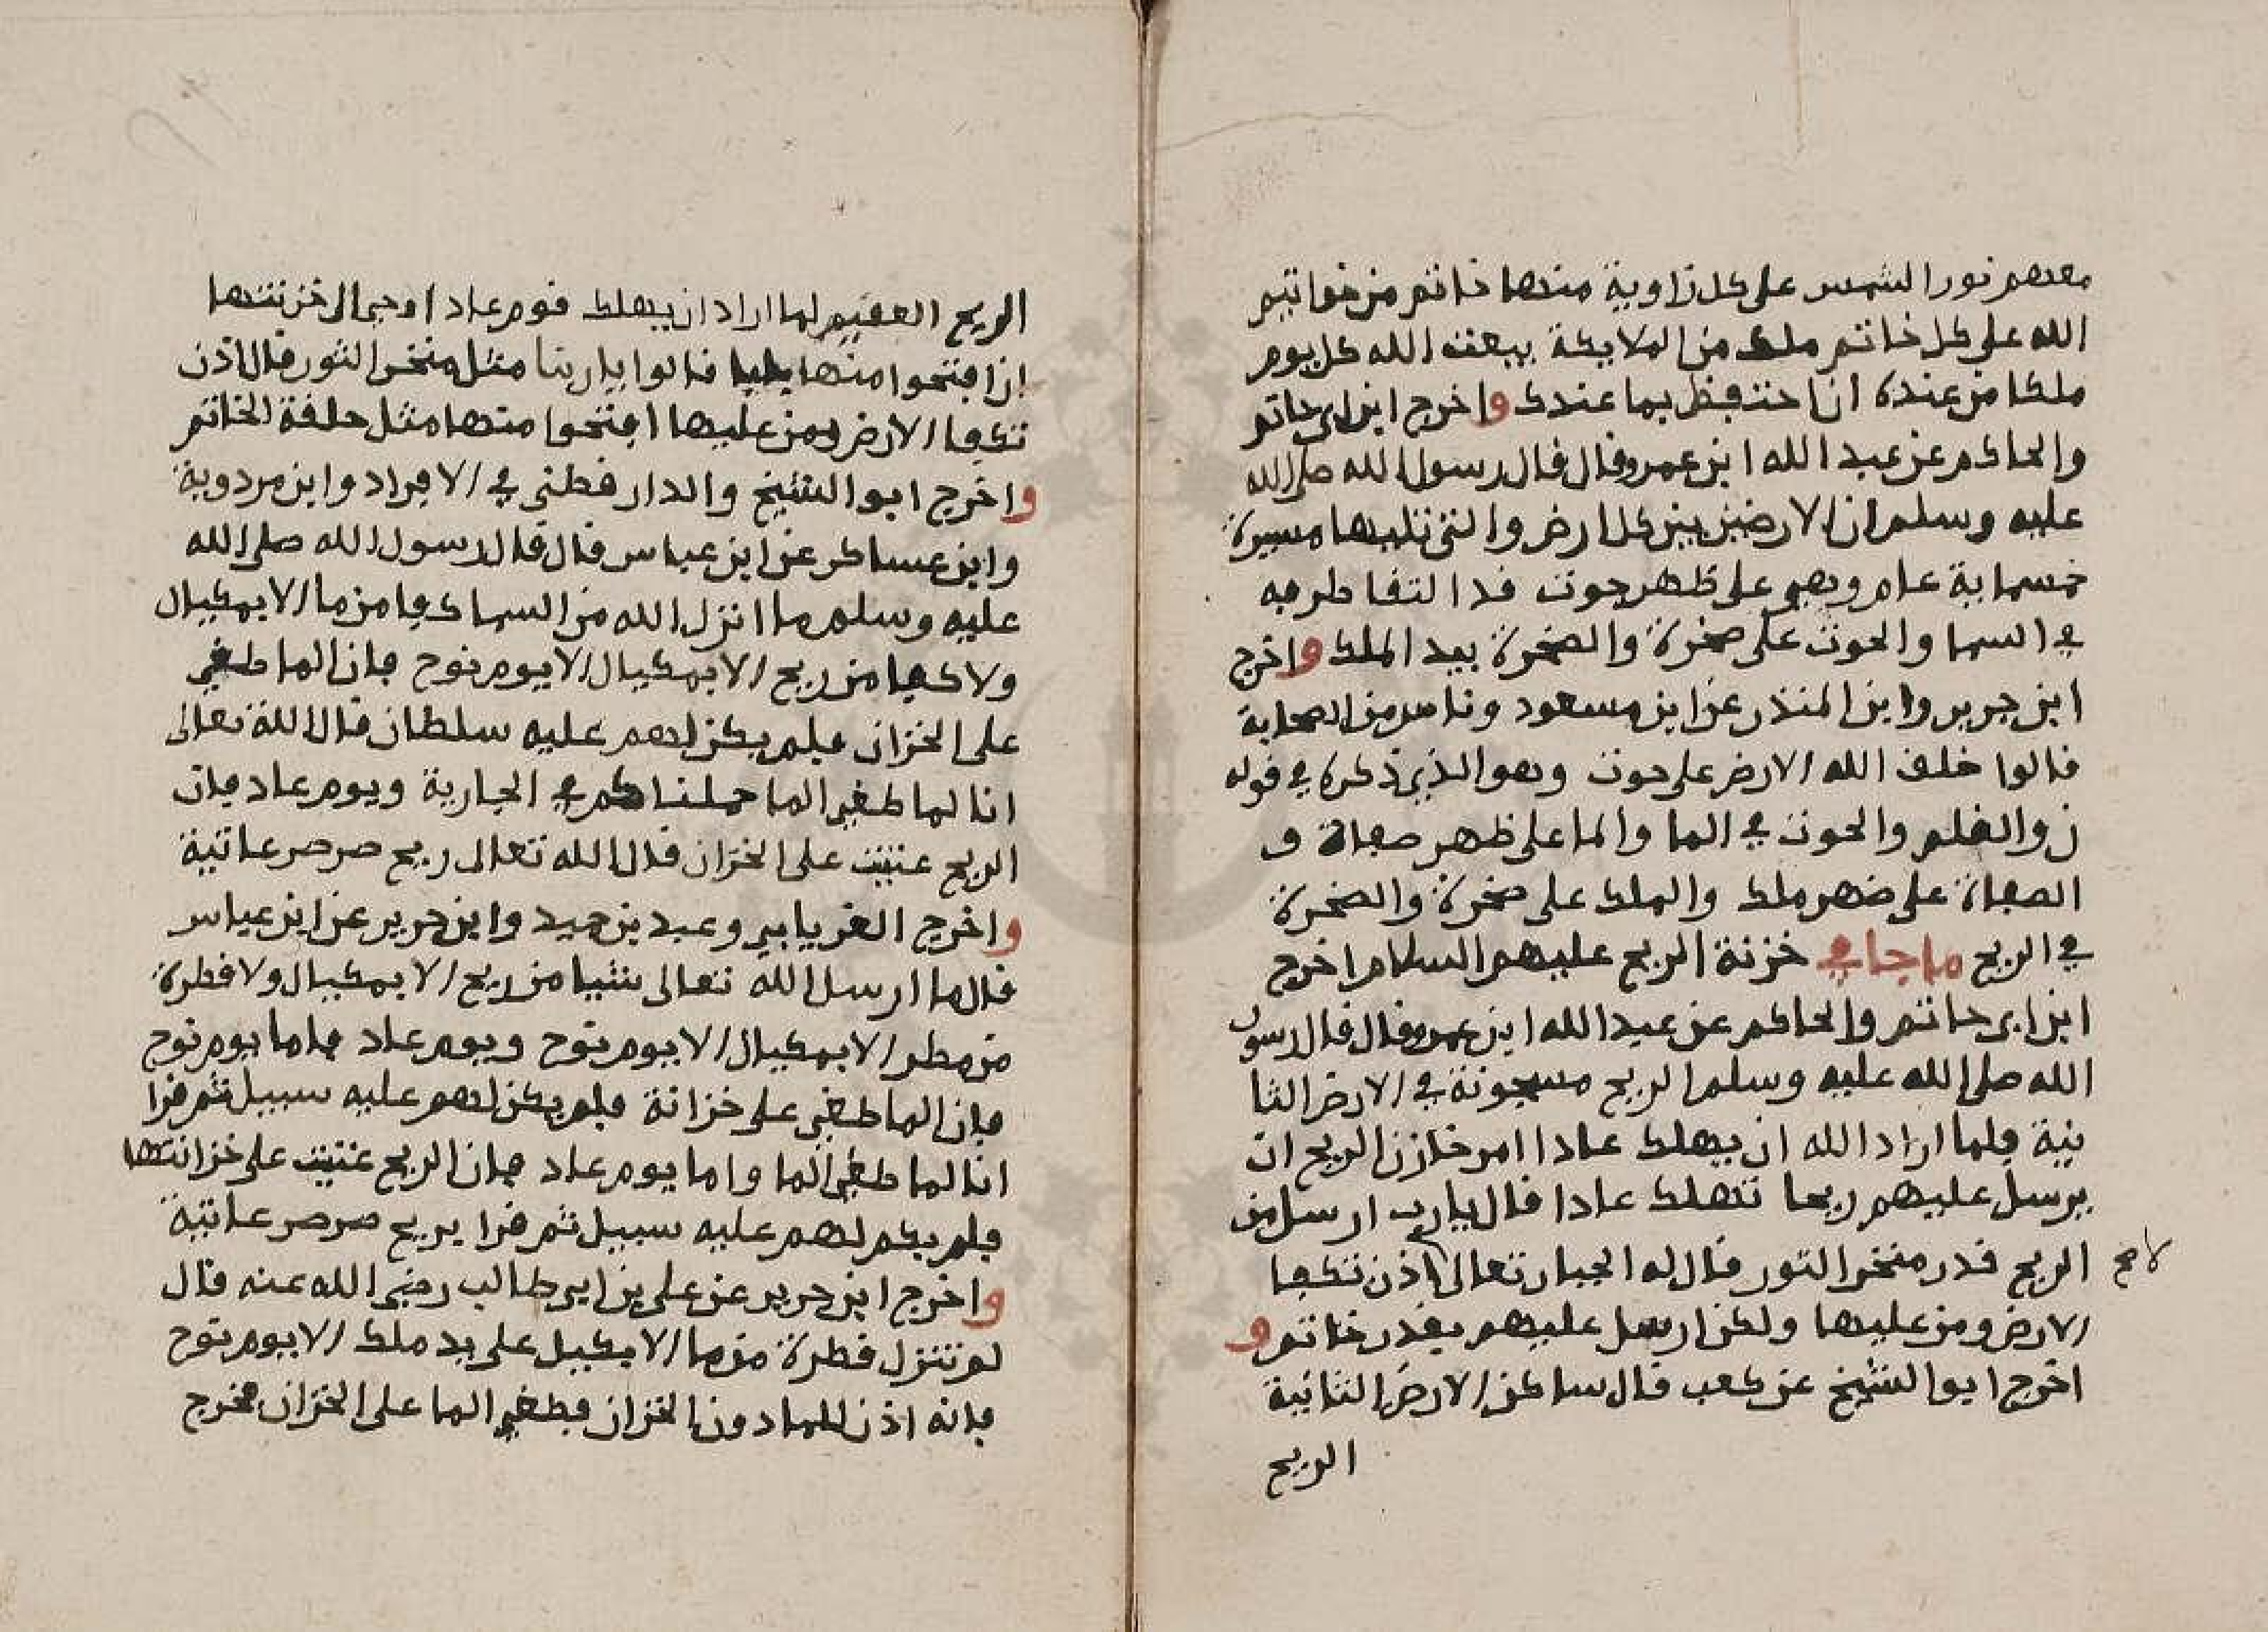 معهم نور الشمس على كل زاوية منها خاتم من خواتيم
الله على كل خاتم ملك من الملايكة يبعث الله كل يوم
ملكا من عنده ان احتفظ بما عندك واخرج ابن ابى حاتم
والحاكم عن عبد الله ابن عمرو قال قال رسول الله صلى الله
عليه وسلم ان الارضين بين كل ارض والتى تليها مسيرة
خمسماية عام وهى على ظهر حوت قد التقا طرفيه
في السما والحوت على صخرة والصخرة بيد الملك واخرج
ابن جرير وابن المنذر عن ابن مسعود وناس من الصحابة
قالوا خلق الله الارض على حوت وهو الذي ذكره في قوله
ن والقلم والحوت في الما والما على ظهر صفاة و
الصفاة على ضهر ملك والملك على صخرة والصخرة
في الريح ما جا في خزنة الريح عليهم السلام اخرج
ابن ابى حاتم والحاكم عن عبد الله ابن عمرو قال قال رسول
الله صلى الله عليه وسلم الريح مسجونة في الارض الثا
نية فلما اراد الله ان يهلك عادا امر خازن الريح ان
يرسل عليهم ريحا تهلك عادا قال يا رب ارسل من
الريح قدر منخر الثور قال له الجبار تعالى اذن تكفا
لا صح
الارض ومن عليها ولكن ارسل عليهم بقدر خاتم و
اخرج ابوا الشيخ عن كعب قال ساكن الارض الثانية
الريح
الريح العقيم لما اراد ان يهلك قوم عاد اوحى الى خزنتها
ان افتحوا منها بابا قالوا يا ربنا مثل منخر الثور قال اذن
تكفا الارض ومن عليها افتحوا منها مثل حلقة الخاتم
واخرج ابوا الشيخ والدارقطنى في الافراد وابن مردوية
وابن عساكر عن ابن عباس قال قال رسول الله صلى الله
عليه وسلم ما انزل الله من السما كفا من ما الا بمكيال
ولا كفا من ريح الا بمكيال الا يوم نوح فان الما طغى
على الخزان فلم يكن لهم عليه سلطان قال الله تعالى
انا لما طغى الما حملناكم في الجارية ويوم عاد فان
الريح عتيت على الخزان قال الله تعالى ريح صرصر عاتية
واخرج الفريابي وعبد بن حميد وابن جرير عن ابن عباس
قال ما ارسل الله تعالى شيا من ريح الا بمكيال ولا قطرة
من مطر الا بمكيال الا يوم نوح ويوم عاد فاما يوم نوح
فان الما طغى على خزانة فلم يكن لهم عليه سبيل ثم قرا
انا لما طغى الما واما يوم عاد فان الريح عتيت على خزانتها
فلم يكم لهم عليه سبيل ثم قرا بريح صرصر عاتية
واخرج ابن جرير عن على بن ابي طالب رضى الله عنه قال
لم تنزل قطرة من ما الا بكيل على يد ملك الا يوم نوح
فانه اذن للما دون الخزان فطغى الما على الخزان فخرج